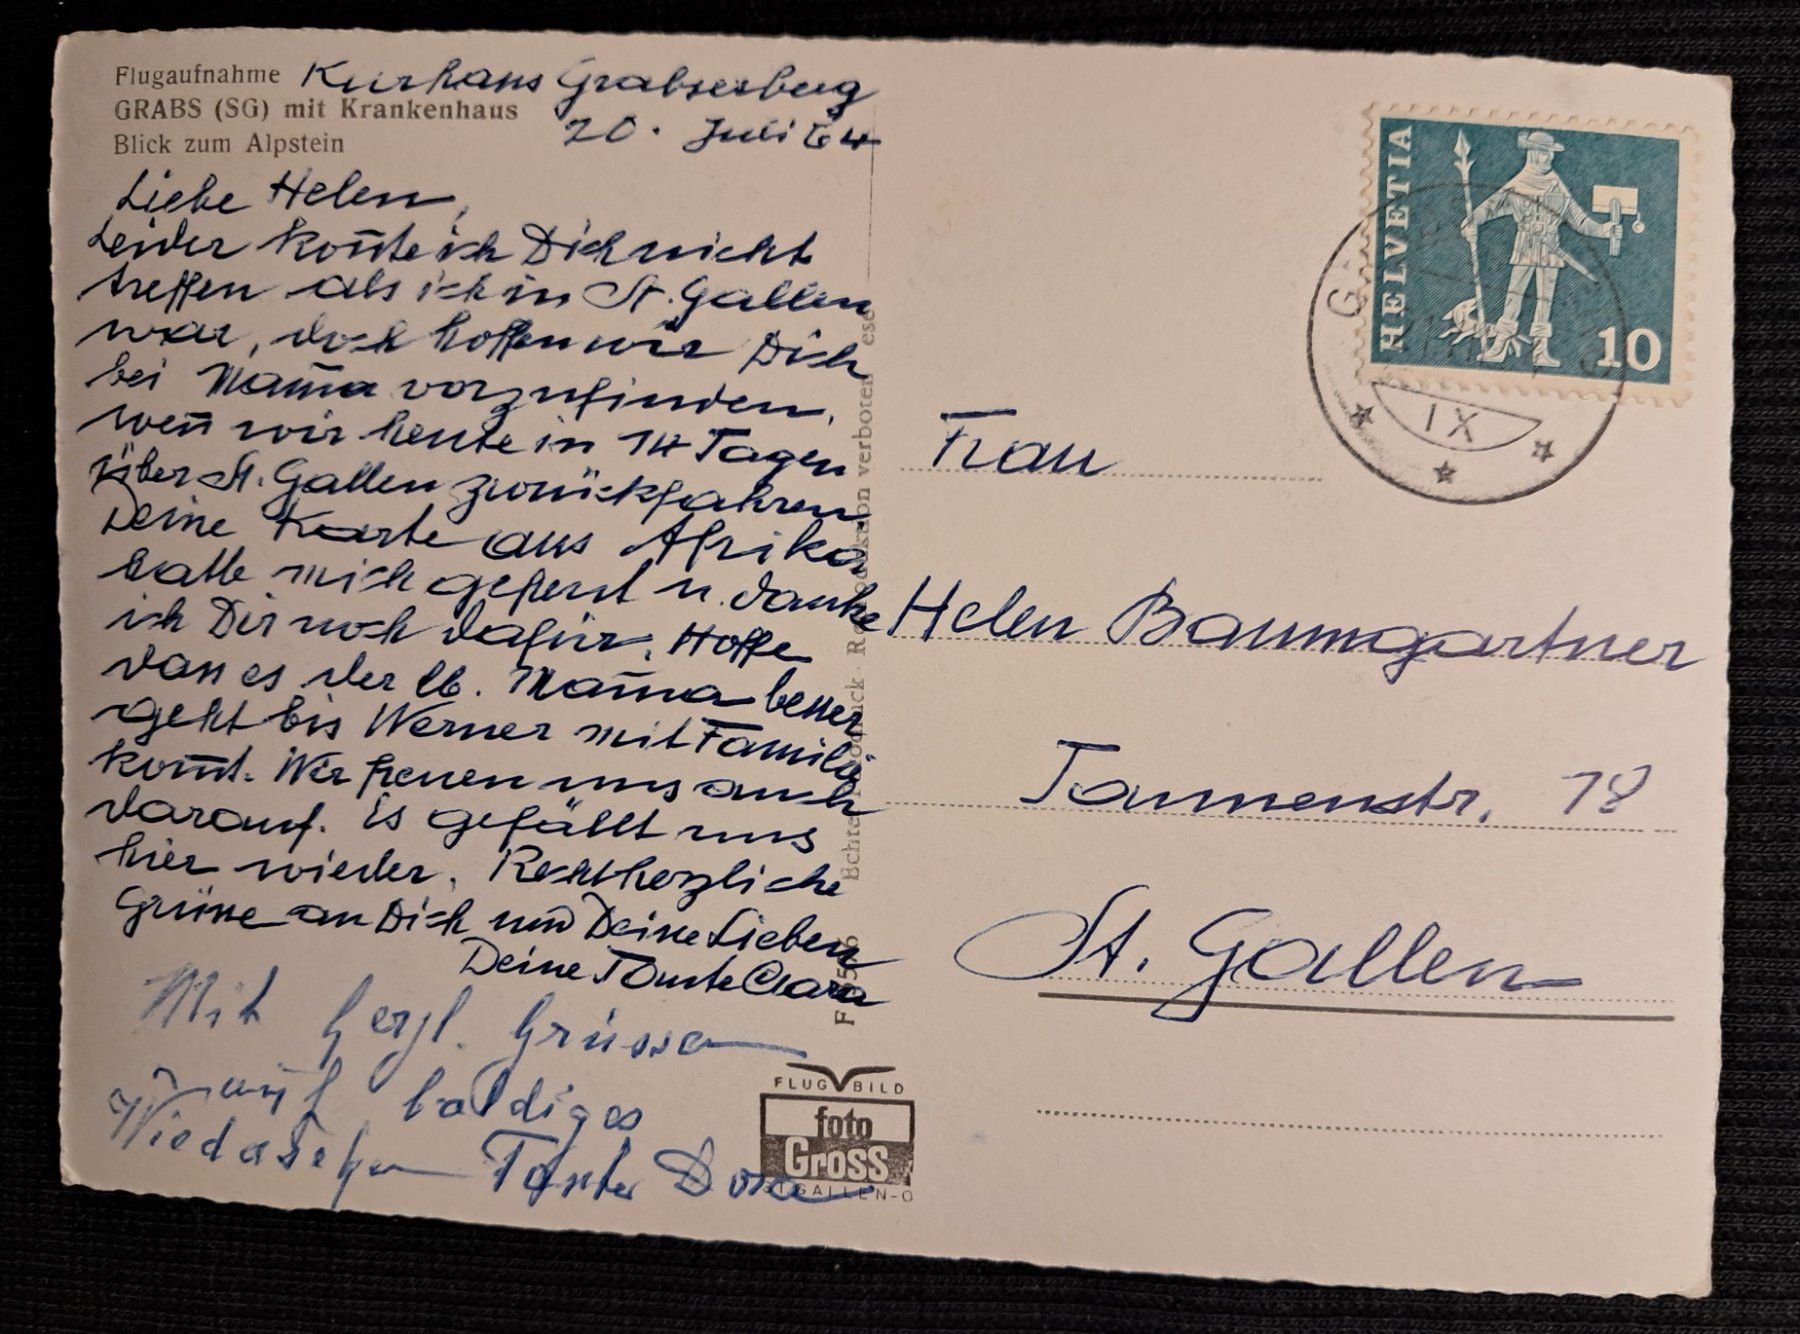 Flugaufnahme
GRABS (SG) mit Krankenhaus
Blick zum Alpstein
Kurhaus Grabserberg
20. Juli 64
Liebe Helen,
Leider kon̄te ich Dich nicht
treffen als ich in St. Gallen
war, doch hoffen wir Dich
bei Mam̄a vorzufinden,
wen̄ wir heute in 14 Tagen
über St. Gallen zurückfahren.
Deine Karte aus Afrika
hatte mich gefreut u. danke
ich Dir noch dafür. Hoffe
dass es der lb. Mam̄a besser
geht bis Werner mit Familie
kom̄t. Wir freuen uns auch
darauf. Es gefällt uns
hier wieder. Recht herzliche
Grüsse an Dich und Deine Lieben
Deine Tante Clara
Mit herzl. Grüssen
auf baldiges
Wiedersehen Tante Dora
Echter Fotodruck Reproduktion verboten
FLUG BILD
foto
Gross
ST. GALLEN-O
HELVETIA
10
IX
Frau
Helen Baumgartner
Tannenstr. 18
St. Gallen